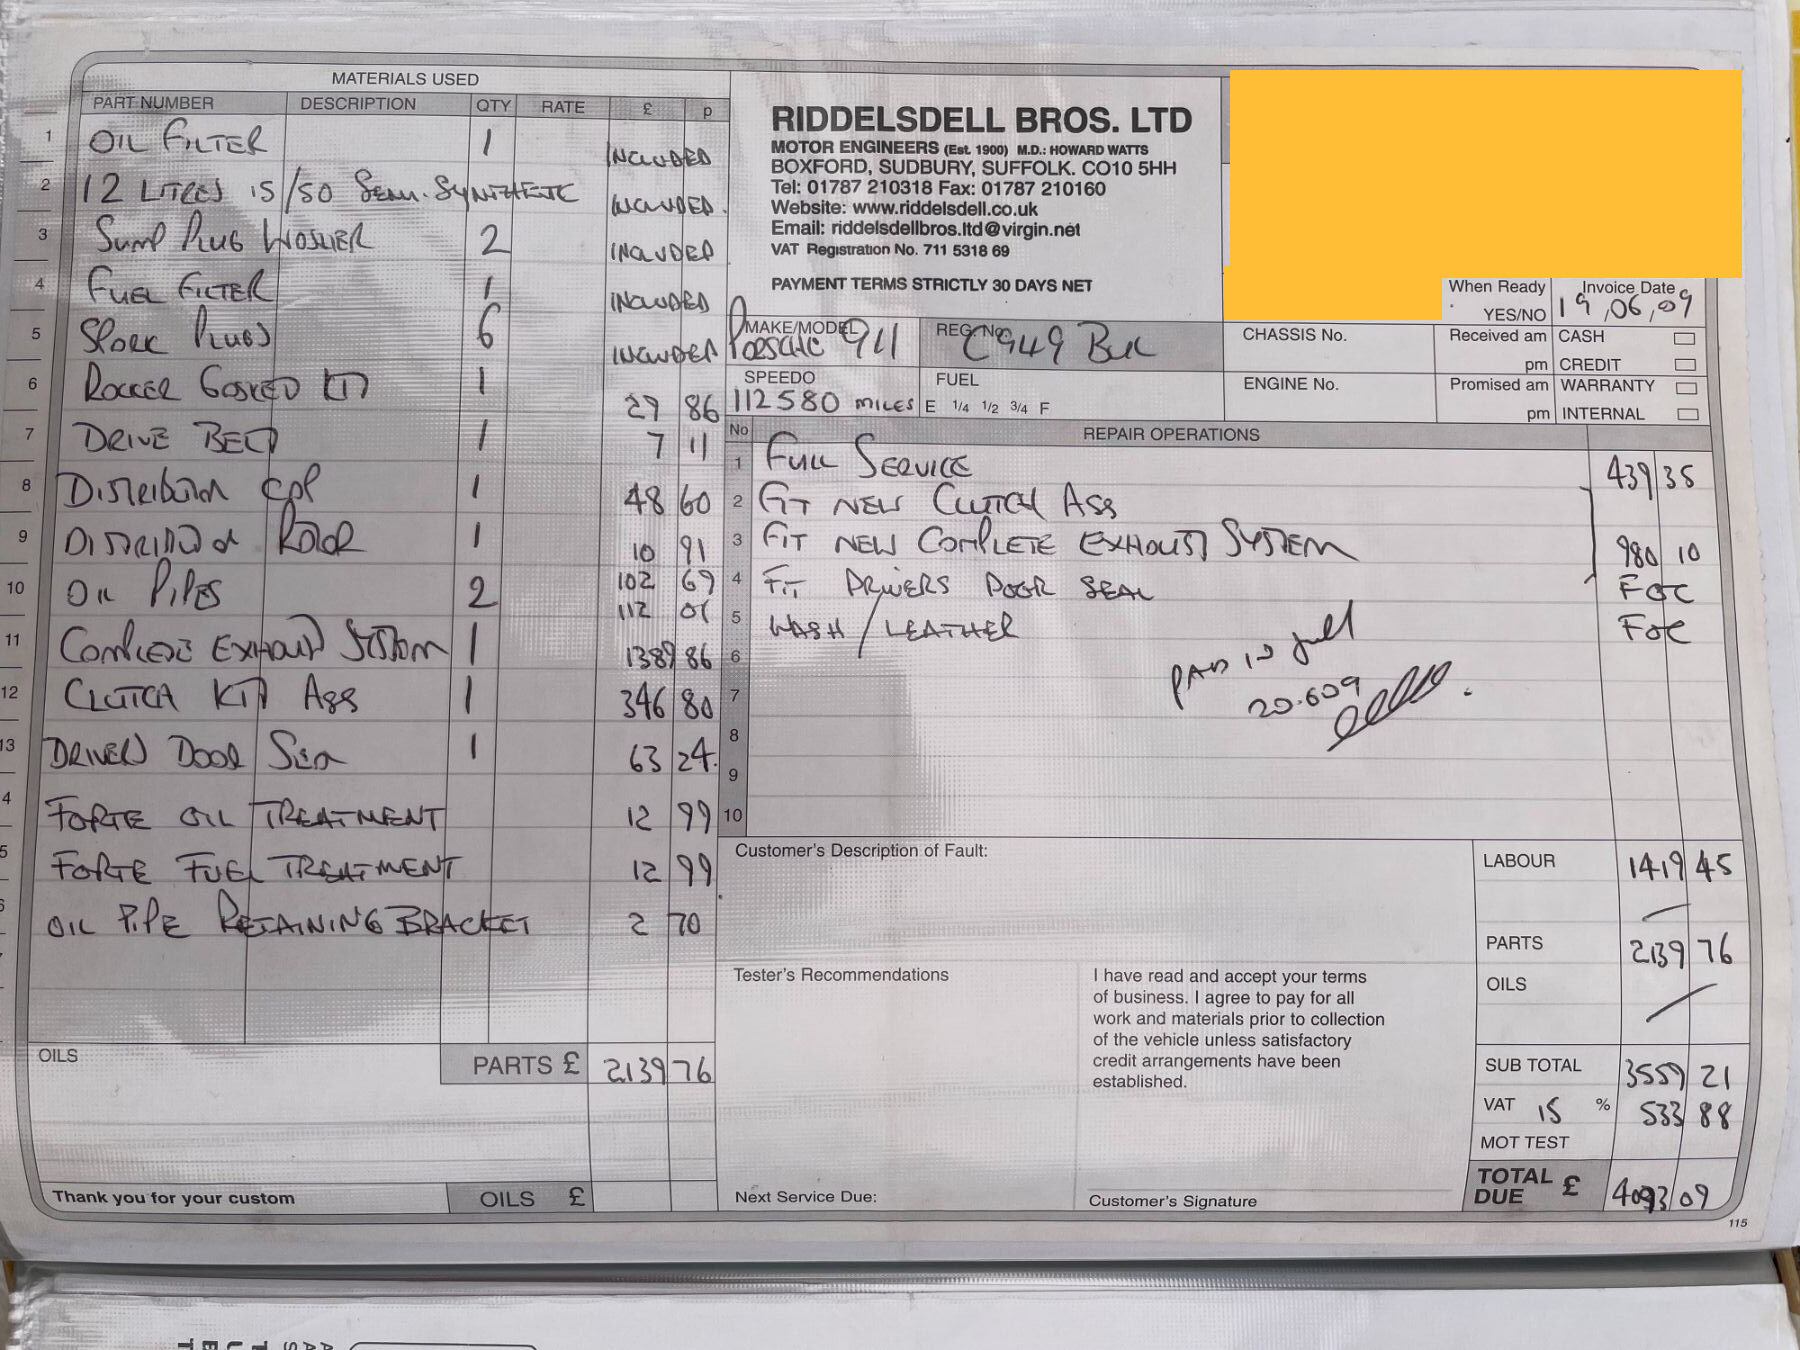 MATERIALS USED
PART NUMBER DESCRIPTION QTY RATE £ p
1 OIL FILTER 1 INCLUDED
2 12 LITRES 15/50 SEMI-SYNTHETIC INCLUDED.
3 SUMP PLUG WASHER 2 INCLUDED
4 FUEL FILTER 1 INCLUDED
5 SPARK PLUGS 6 INCLUDED
6 ROCKER GASKET KIT 1 29 86
7 DRIVE BELT 1 7 11
8 DISTRIBUTOR CAP 1 48 60
9 DISTRIBUTOR ROTOR 1 10 91
10 OIL PIPES 2 102 69
112 01
11 COMPLETE EXHAUST SYSTEM 1 1389 86
12 CLUTCH KIT ASS 1 346 80
13 DRIVERS DOOR SEAL 1 63 24.
4 FORTE OIL TREATMENT 12 99
5 FORTE FUEL TREATMENT 12 99
6 OIL PIPE RETAINING BRACKET 2 70
OILS
PARTS £ 2139 76
Thank you for your custom
OILS £
RIDDELSDELL BROS. LTD
MOTOR ENGINEERS (Est. 1900) M.D.: HOWARD WATTS
BOXFORD, SUDBURY, SUFFOLK. CO10 5HH
Tel: 01787 210318 Fax: 01787 210160
Website: www.riddelsdell.co.uk
Email: riddelsdellbros.ltd@virgin.net
VAT Registration No. 711 5318 69
PAYMENT TERMS STRICTLY 30 DAYS NET
When Ready
YES/NO
Invoice Date
19,06,09
MAKE/MODEL PORSCHE 911
REG No. C949 BUL
CHASSIS No.
Received am
pm
CASH
CREDIT
SPEEDO
112580 MILES
FUEL
E 1/4 1/2 3/4 F
ENGINE No.
Promised am
pm
WARRANTY
INTERNAL
No REPAIR OPERATIONS
1 FULL SERVICE 439 35
2 FIT NEW CLUTCH ASS
3 FIT NEW COMPLETE EXHAUST SYSTEM 980 10
4 FIT DRIVERS DOOR SEAL FOC
5 WASH / LEATHER FOC
6
PAID IN full
7
20.609
8
9
10
Customer's Description of Fault:
LABOUR 1419 45
PARTS 2139 76
OILS
Tester's Recommendations
I have read and accept your terms
of business. I agree to pay for all
work and materials prior to collection
of the vehicle unless satisfactory
credit arrangements have been
established.
SUB TOTAL 3559 21
VAT 15 % 533 88
MOT TEST
TOTAL DUE £ 4093 09
Next Service Due:
Customer's Signature
115